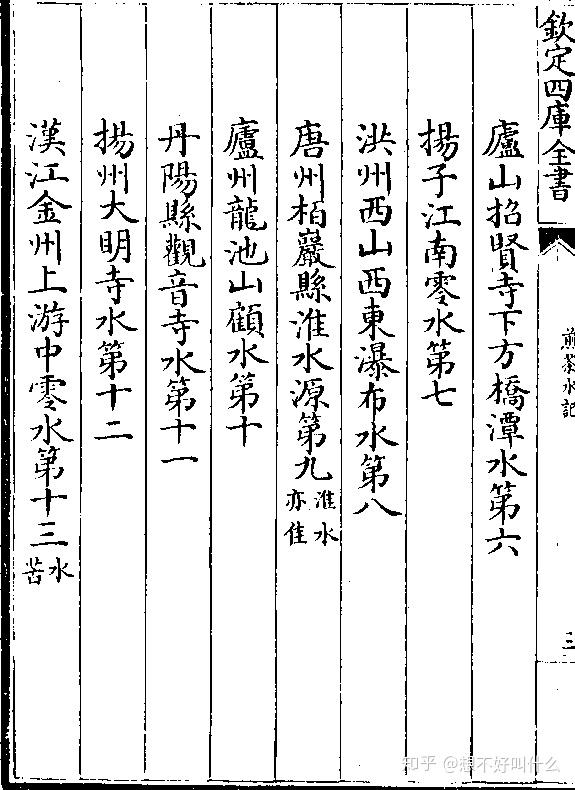 欽定四庫全書
煎茶水記
三
廬山招賢寺下方橋潭水第六
揚子江南零水第七
洪州西山西東瀑布水第八
唐州栢巖縣淮水源第九淮水亦佳
廬州龍池山顧水第十
丹陽縣觀音寺水第十一
揚州大明寺水第十二
漢江金州上游中零水第十三水苦
知乎 @想不好叫什么